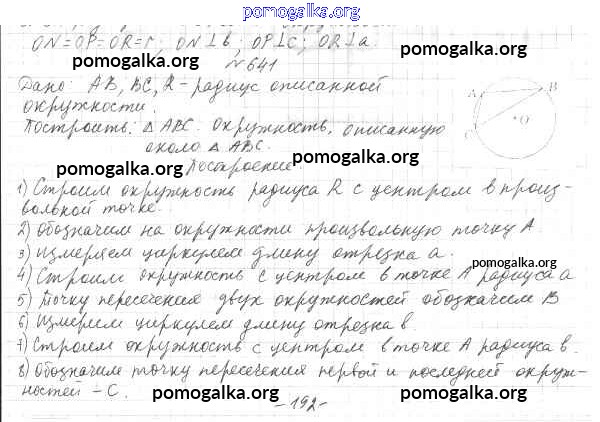 pomogalka.org
ON=OP=OR=r; ON⊥b; OP⊥c; OR⊥a.
pomogalka.org
№641
Дано: AB, BC, R-радиус описанной
окружности.
pomogalka.org
Построить: △ABC. окружность, описанную
около △ABC.
pomogalka.org
pomogalka.org
Построение.
A B O C
1) Строим окружность радиуса R с центром в произ-
вольной точке.
pomogalka.org
2) Обозначим на окружности произвольную точку A.
3) Измеряем циркулем длину отрезка a.
pomogalka.org
4) Строим окружность с центром в точке A радиуса a
5) Точку пересечения двух окружностей обозначим B
pomogalka.org
6) Измерим циркулем длину отрезка b.
pomogalka.org
7) Строим окружность с центром в точке A радиуса b.
8) Обозначим точку пересечения первой и последней окруж-
ностей - C.
pomogalka.org
pomogalka.org
-192-